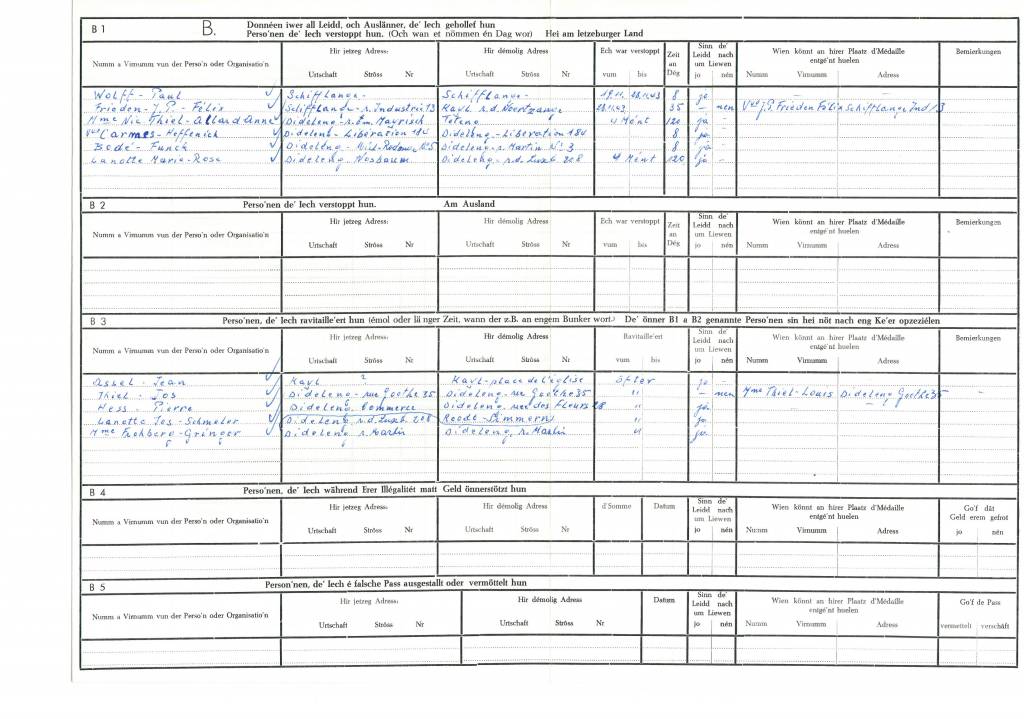 B 1 B. Donnéen iwer all Leidd, och Auslänner, de' Iech gehollef hun
Perso'nen de' Iech verstoppt hun. (Och wan et nömmen én Dag wor) Hei am letzeburger Land
Numm a Virnumm vun der Perso'n oder Organisatio'n
Hir jetzeg Adress:
Urtschaft Ströss Nr
Hir démolig Adress
Urtschaft Ströss Nr
Ech war verstoppt
vum bis
Zeit an Dég
Sinn de' Leidd nach um Liewen
jo nén
Wien könnt an hirer Plaatz d'Médaille entgé'nt huelen
Numm Virnumm Adress
Bemierkungen
Wolff - Paul Schifflange - Schifflange - 19.11. 28.11.43 8 ja
Frieden - J.P. - Félix Schifflange - r. Industrie 13 Kayl r.d. Noertzange 28.11.43 35 - nen Vve J.P. Frieden Félix Schifflange Ind 13
Mme Nic Thiel-Allard Anne Dideleng - r. Em. Mayrisch Téteng 4 Mént 120 ja -
Vve Carmes - Heffenich Dideleng - Libération 184 Dideleng - Libération 184 8 ja -
Bodé - Funck Dideleng - N°5 Dideleng - r. Martin N° 3 8 ja -
Lanotte Maria-Rosa Dideleng Nosbaum Dideleng - r.d. Luxb. 208 4 Mént 120 ja -
B 2 Perso'nen de' Iech verstoppt hun. Am Ausland
Numm a Virnumm vun der Perso'n oder Organisatio'n
Hir jetzeg Adress:
Urtschaft Ströss Nr
Hir démolig Adress
Urtschaft Ströss Nr
Ech war verstoppt
vum bis
Zeit an Dég
Sinn de' Leidd nach um Liewen
jo nén
Wien könnt an hirer Plaatz d'Médaille entgé'nt huelen
Numm Virnumm Adress
Bemierkungen
B 3 Perso'nen, de' Iech ravitaille'ert hun (émol oder länger Zeit, wann der z.B. an engem Bunker wort.) De' önner B1 a B2 genannte Perso'nen sin hei nöt nach eng Ke'er opzeziélen
Numm a Virnumm vun der Perso'n oder Organisatio'n
Hir jetzeg Adress:
Urtschaft Ströss Nr
Hir démolig Adress
Urtschaft Ströss Nr
Ravitaille'ert
vum bis
Sinn de' Leidd nach um Liewen
jo nén
Wien könnt an hirer Plaatz d'Médaille entgé'nt huelen
Numm Virnumm Adress
Bemierkungen
Assel - Jean Kayl ? Kayl - place de l'église öfter ja -
Thiel - Jos Dideleng - rue Goethe 35 Dideleng - rue Goethe 35 " - nen Mme Thiel-Louis Dideleng Goethe 35 -
Hess - Pierre Dideleng Commerce Dideleng, rue des Fleurs 28 " ja
Lanotte Jos - Schmeler Dideleng r.d. Luxb. 208 Roodt-Simmern " ja
Mme Frohberg-Gringer Dideleng r. Martin Dideleng r. Martin " ja
B 4 Perso'nen, de' Iech während Erer Illégalitét matt Geld önnerstötzt hun
Numm a Virnumm vun der Perso'n oder Organisatio'n
Hir jetzeg Adress:
Urtschaft Ströss Nr
Hir démolig Adress
Urtschaft Ströss Nr
d'Somme
Datum
Sinn de' Leidd nach um Liewen
jo nén
Wien könnt an hirer Plaatz d'Médaille entgé'nt huelen
Numm Virnumm Adress
Go'f dát Geld erem gefrot
jo nén
B 5 Person'nen, de' Iech é falsche Pass ausgestallt oder vermöttelt hun
Numm a Virnumm vun der Perso'n oder Organisatio'n
Hir jetzeg Adress:
Urtschaft Ströss Nr
Hir démolig Adress
Urtschaft Ströss Nr
Datum
Sinn de' Leidd nach um Liewen
jo nén
Wien könnt an hirer Plaatz d'Médaille entgé'nt huelen
Numm Virnumm Adress
Go'f de Pass
vermettelt verschaft